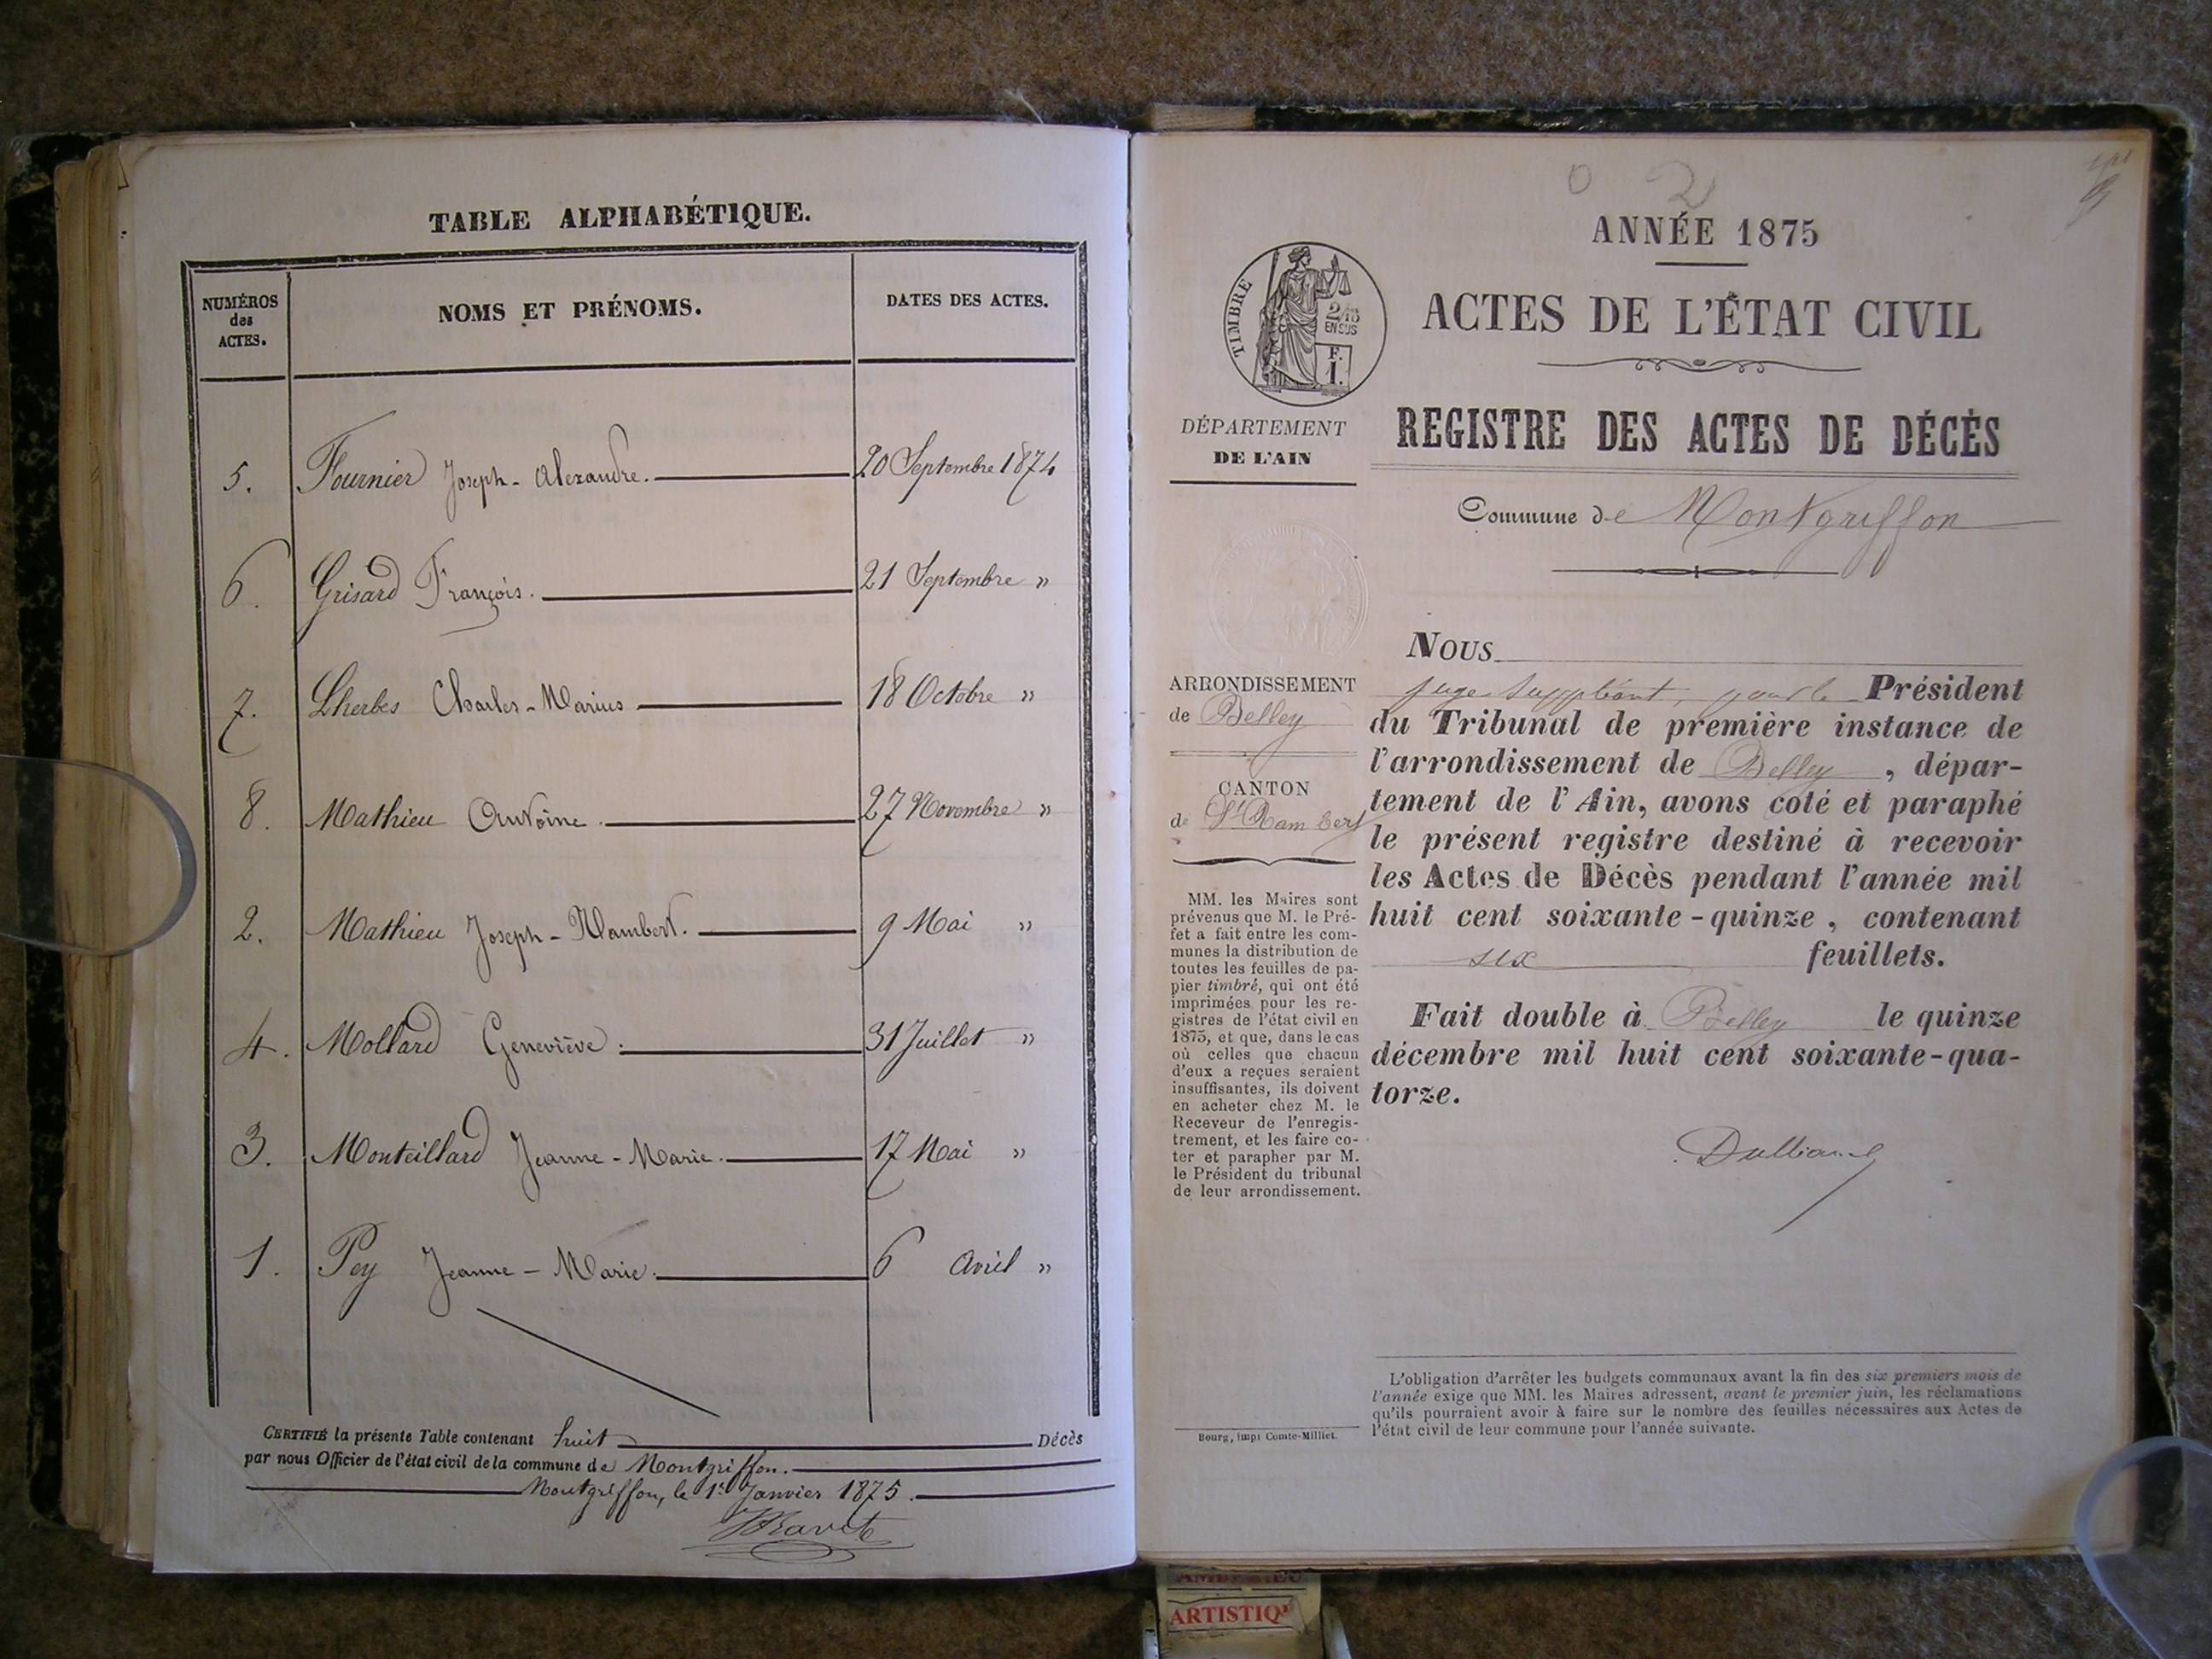 TABLE ALPHABÉTIQUE.
NUMÉROS des ACTES.
NOMS ET PRÉNOMS.
DATES DES ACTES.
5. Fournier Joseph-Alexandre. 20 Septembre 1874
6. Grisard François. 21 Septembre "
7. Lherbes Charles-Marius 18 Octobre "
8. Mathieu Antoine. 27 Novembre "
2. Mathieu Joseph-Rambert. 9 Mai "
4. Mollard Geneviève. 31 Juillet "
3. Monteillard Jeanne-Marie. 17 Mai "
1. Pey Jeanne-Marie. 6 Avril "
CERTIFIÉ la présente Table contenant huit Décès
par nous Officier de l'état civil de la commune de Montgriffon.
Montgriffon, le 1er Janvier 1875.
ANNÉE 1875
ACTES DE L'ÉTAT CIVIL
REGISTRE DES ACTES DE DÉCÈS
Commune de Montgriffon
TIMBRE
2/10
EN SUS
F.
1.
DÉPARTEMENT
DE L'AIN
ARRONDISSEMENT
de Belley
CANTON
de St Rambert
MM. les Maires sont
prévenus que M. le Pré-
fet a fait entre les com-
munes la distribution de
toutes les feuilles de pa-
pier timbré, qui ont été
imprimées pour les re-
gistres de l'état civil en
1875, et que, dans le cas
où celles que chacun
d'eux a reçues seraient
insuffisantes, ils doivent
en acheter chez M. le
Receveur de l'enregis-
trement, et les faire co-
ter et parapher par M.
le Président du tribunal
de leur arrondissement.
NOUS
juge suppléant, pour le Président
du Tribunal de première instance de
l'arrondissement de Belley, dépar-
tement de l'Ain, avons coté et paraphé
le présent registre destiné à recevoir
les Actes de Décès pendant l'année mil
huit cent soixante-quinze, contenant
six feuillets.
Fait double à Belley le quinze
décembre mil huit cent soixante-qua-
torze.
L'obligation d'arrêter les budgets communaux avant la fin des six premiers mois de
l'année exige que MM. les Maires adressent, avant le premier juin, les réclamations
qu'ils pourraient avoir à faire sur le nombre des feuilles nécessaires aux Actes de
l'état civil de leur commune pour l'année suivante.
Bourg, impr Comte-Milliet.
ARTISTIQ